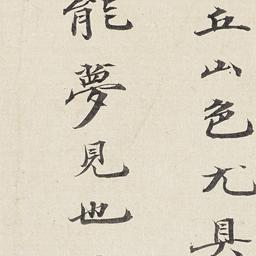 丘山色尤具
能夢見也